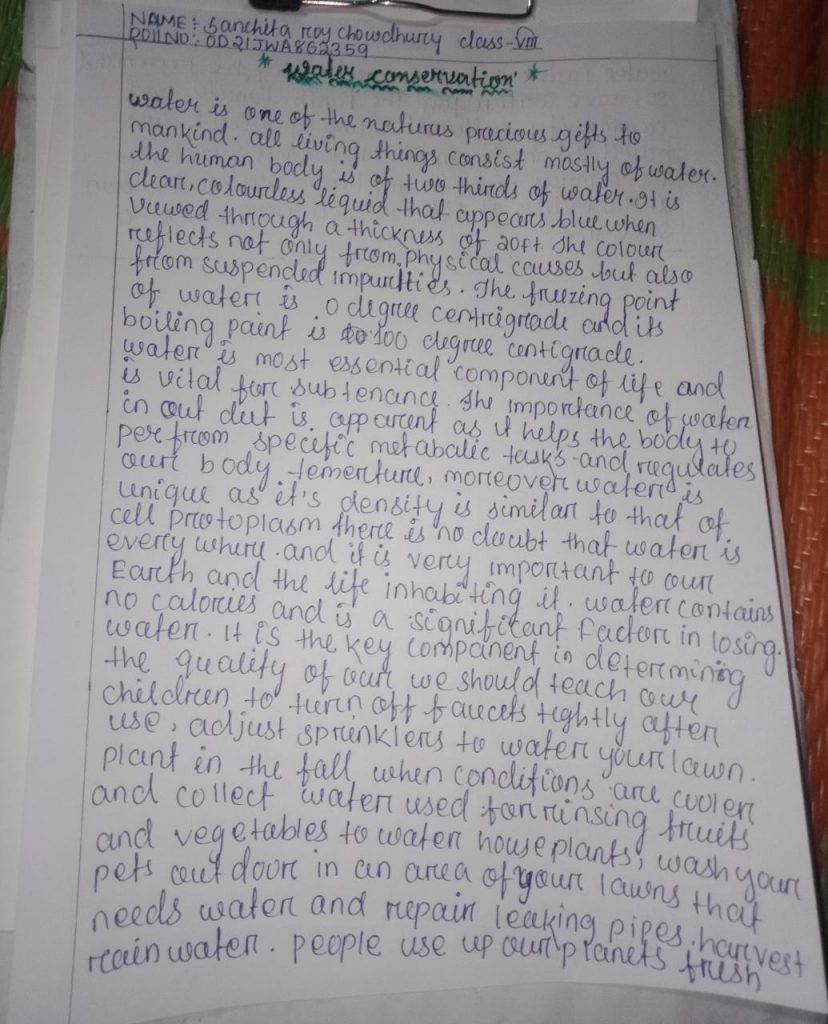 NAME:- Sanchita roy chowdhury class-VIII
ROll NO:- OD21JWA862359
* water conservation *
water is one of the natures precious gifts to
mankind. all living things consist mostly of water.
the human body is of two thirds of water. It is
clear, colourless liquid that appears blue when
viewed through a thickness of 20ft. The colour
reflects not only from physical causes but also
from suspended impurities. The freezing point
of water is 0 degree centrigrade and its
boiling paint is 100 degree centigrade.
water is most essential component of life and
is vital for subtenance. The importance of water
in out deit is apparent as it helps the body to
perfrom specific metabalic tasks and regulates
our body temerture, moreover water is
unique as it's density is similar to that of
cell protoplasm there is no doubt that water is
every where. and it is very important to our
Earth and the life inhabiting it. water contains
no calories and is a significant factor in losing.
water. It is the key companent in determining
the quality of our we should teach our
children to turn off faucets tightly after
use, adjust sprinklers to water your lawn.
plant in the fall when conditions are cooler
and collect water used for rinsing fruits
and vegetables to water houseplants, wash your
pets out door in an area of your lawns that
needs water and repair leaking pipes. harvest
rain water. people use up our planets fresh